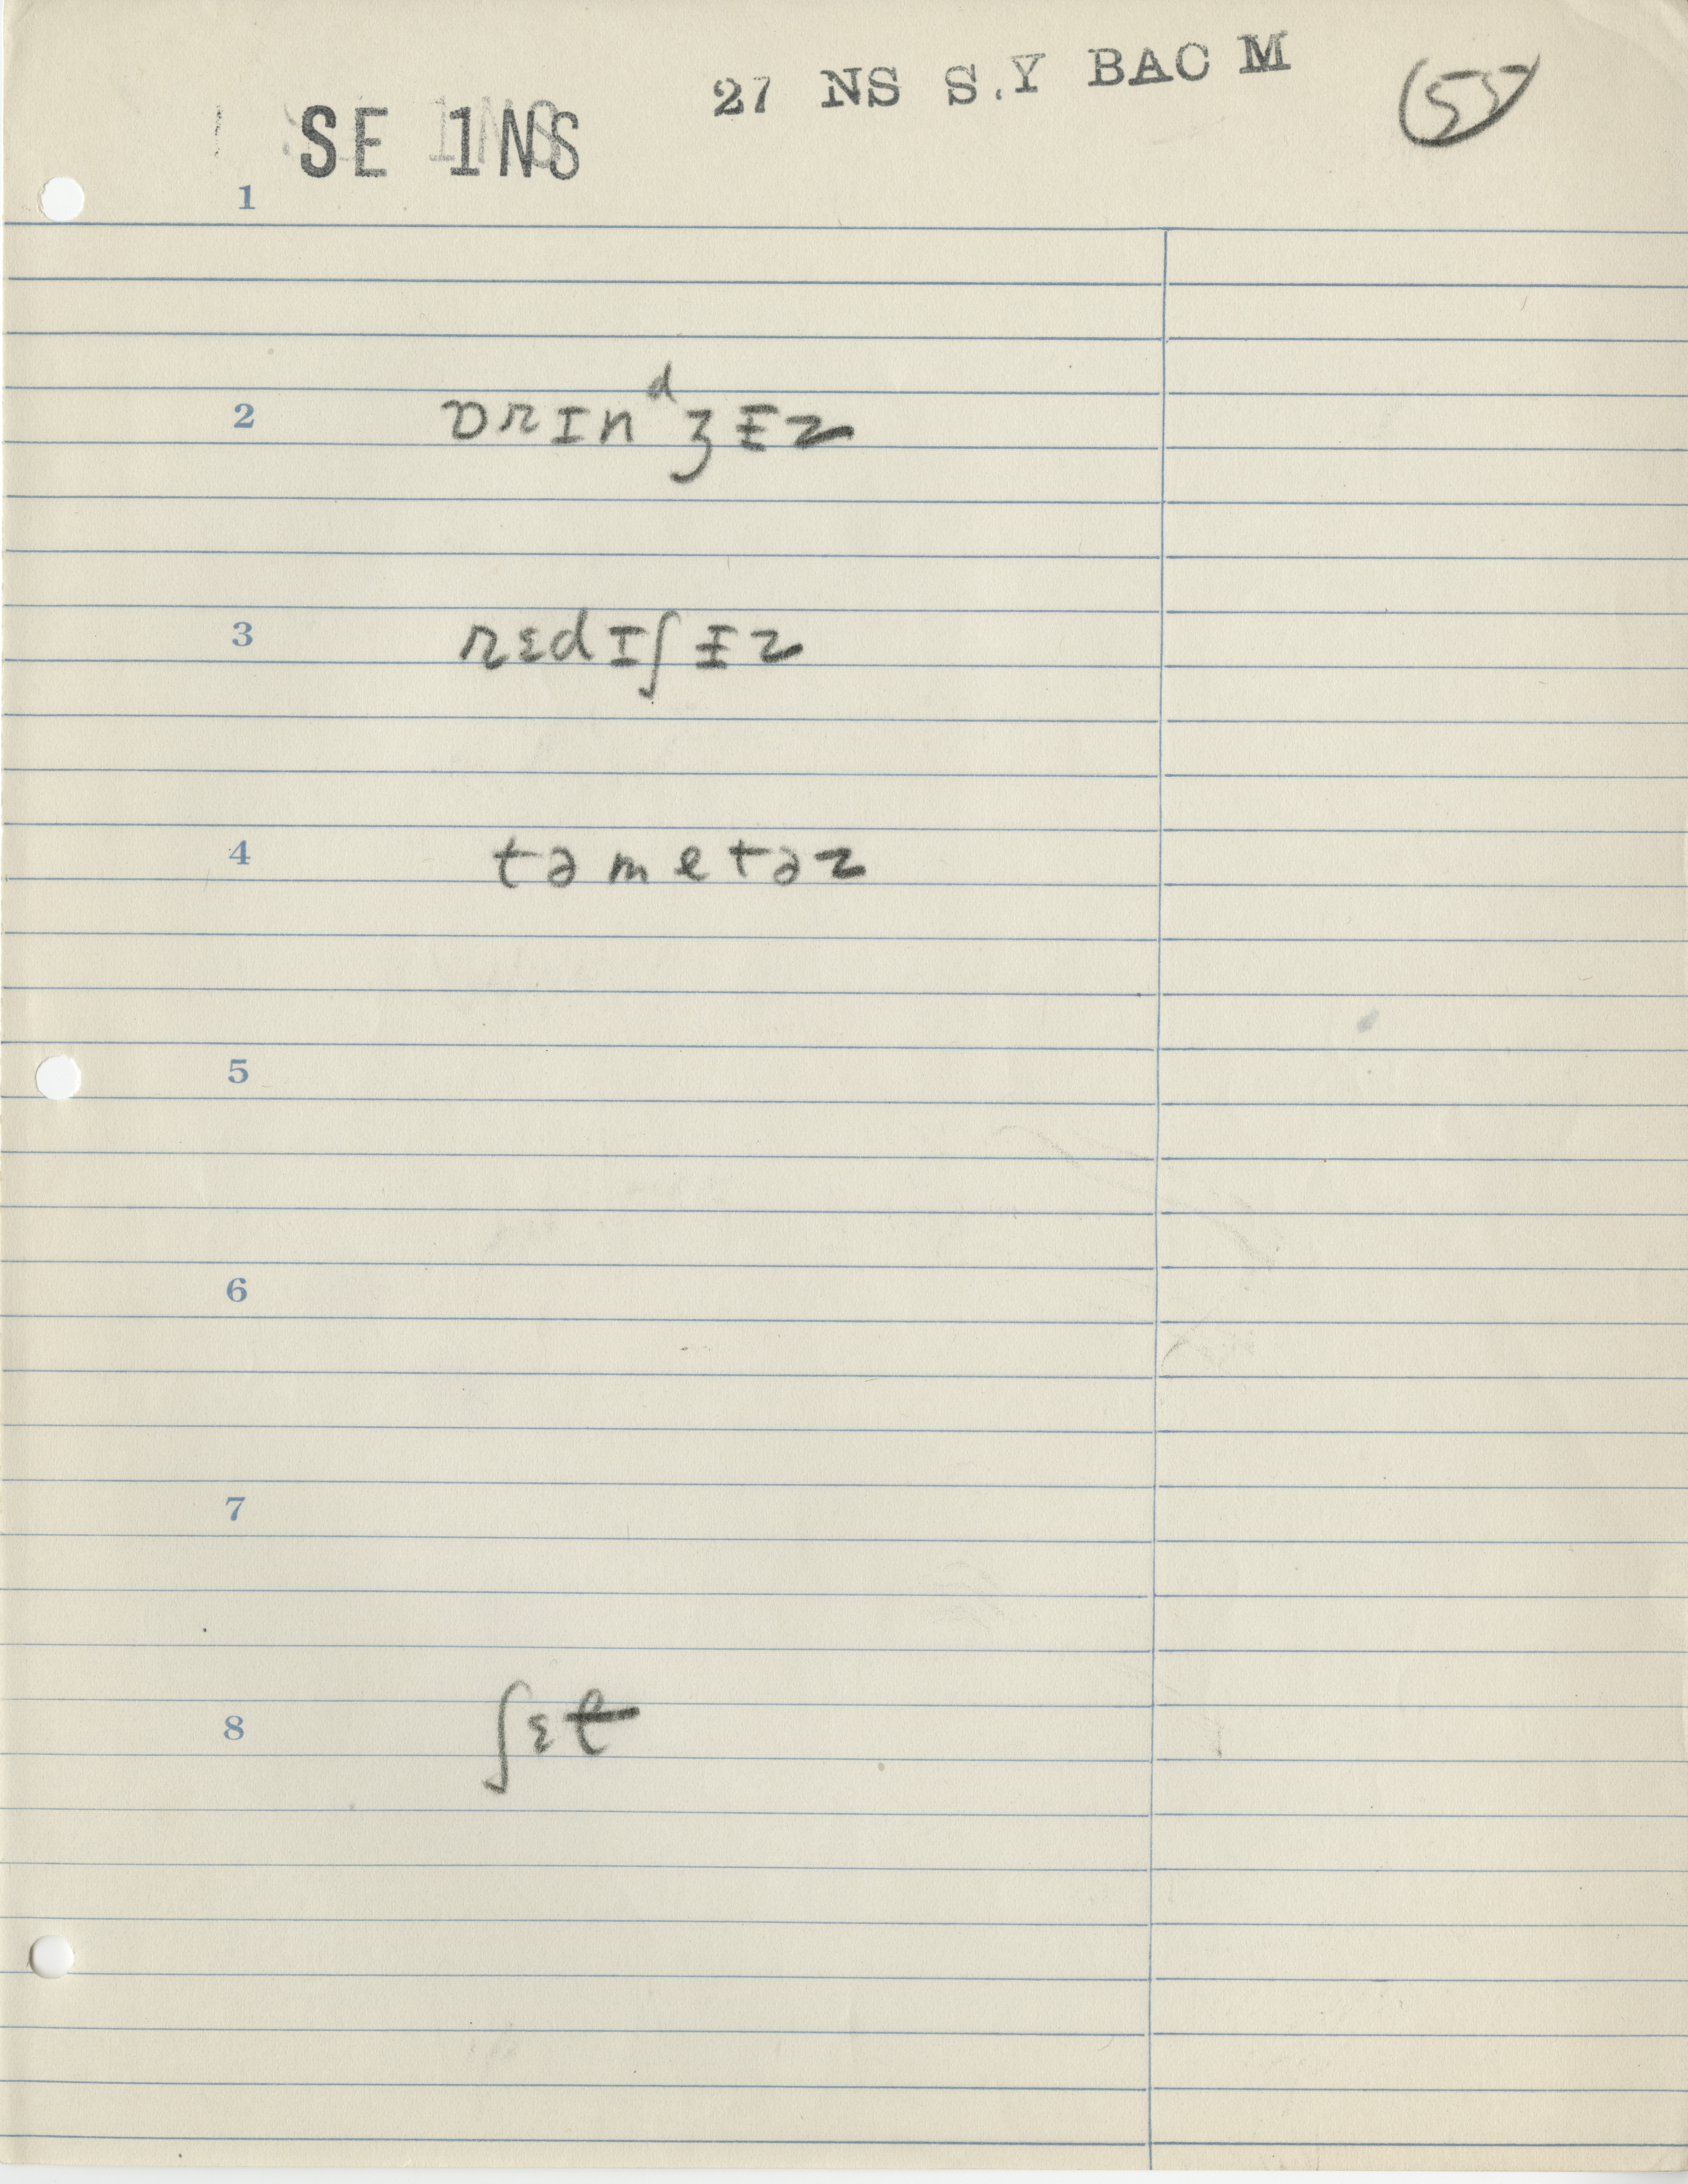 27 NS S.Y BAC M
55
SE 1NS
1
2 ɒrɪnᵈʒɨz
3 rɛdɪʃɨz
4 təmetəz
5
6
7
8 ʃɛt